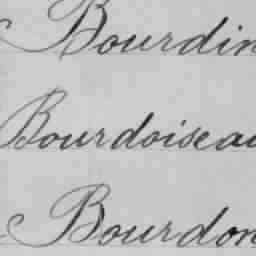 Bourdin
Bourdoiseau
Bourdon